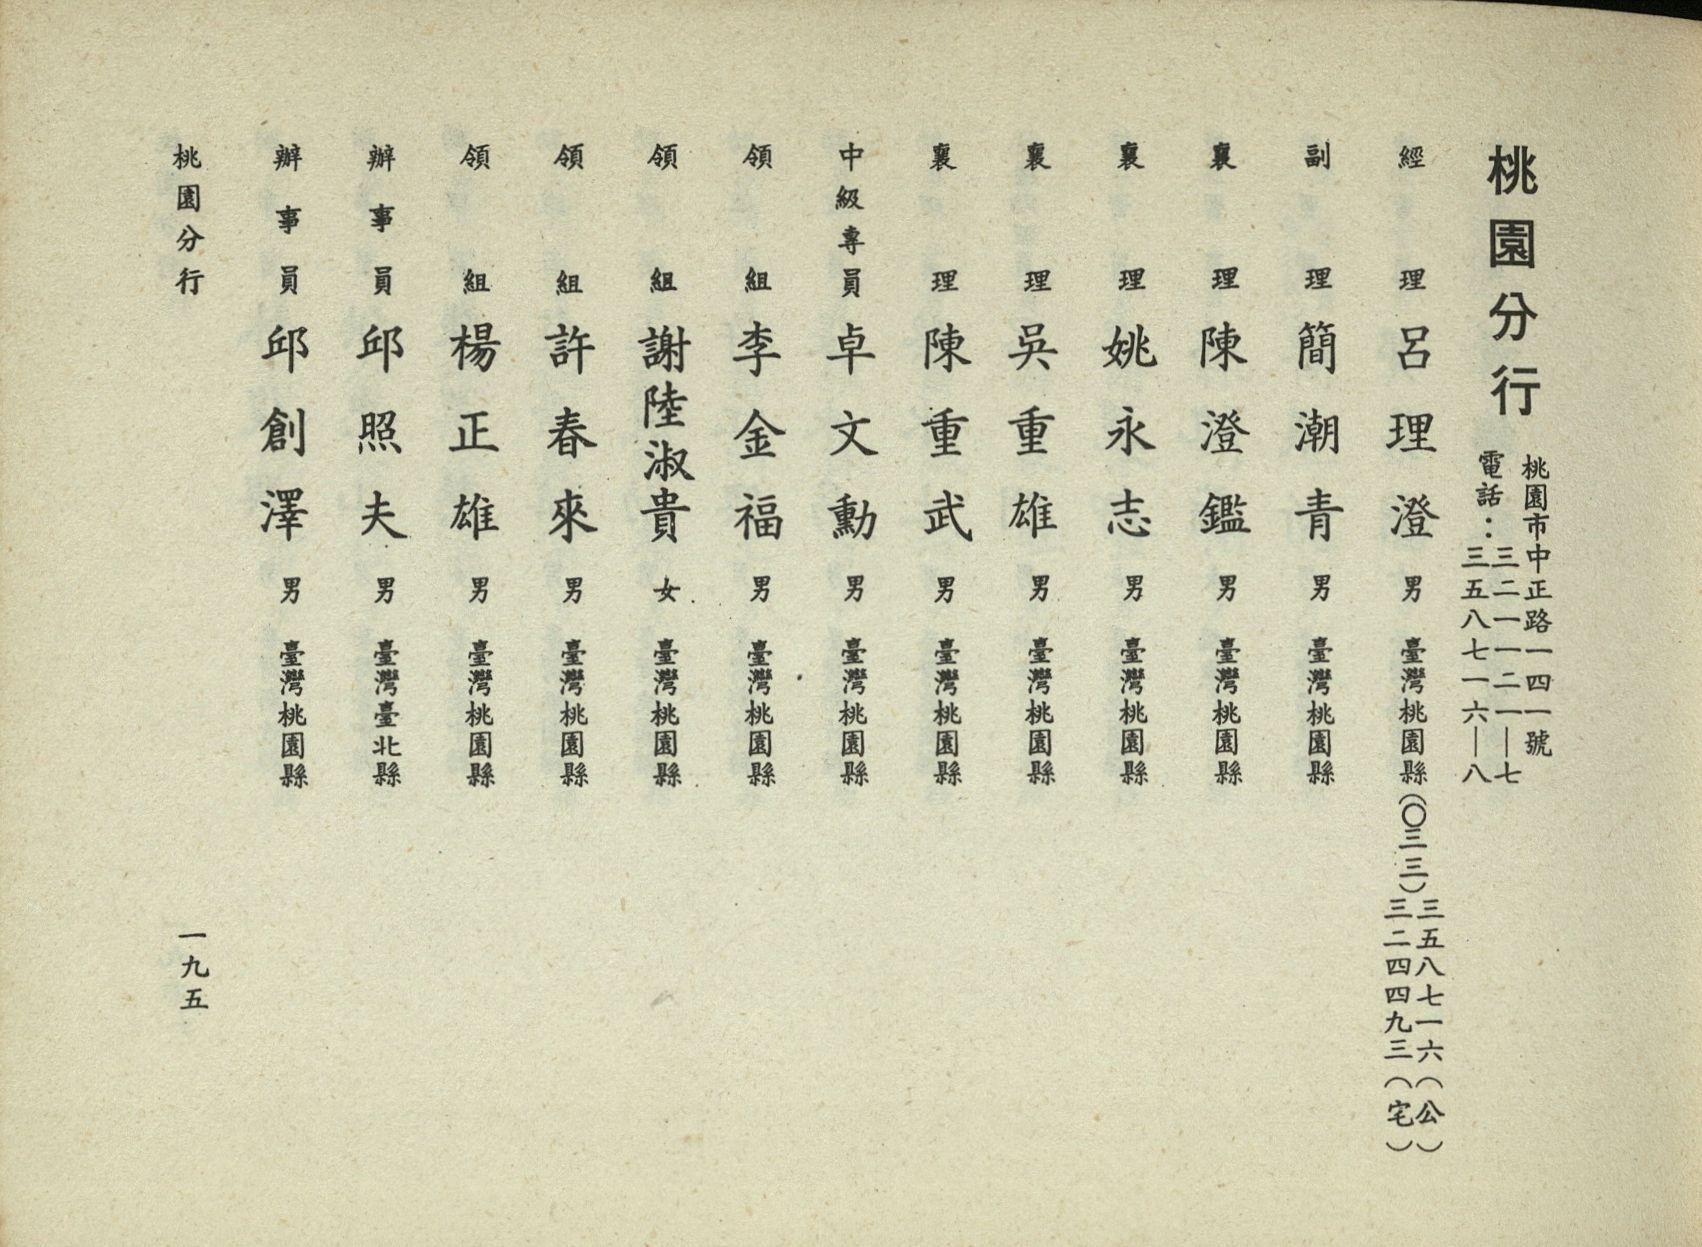 桃園分行
桃園市中正路一四一號
電話：三二一一二一—七
三五八七一六—八
經理 呂理澄 男 臺灣桃園縣 (〇三三) 三五八七一六(公)
三二四四九三(宅)
副理 簡潮青 男 臺灣桃園縣
襄理 陳澄鑑 男 臺灣桃園縣
襄理 姚永志 男 臺灣桃園縣
襄理 吳重雄 男 臺灣桃園縣
襄理 陳重武 男 臺灣桃園縣
中級專員 卓文勳 男 臺灣桃園縣
領組 李金福 男 臺灣桃園縣
領組 謝陸淑貴 女 臺灣桃園縣
領組 許春來 男 臺灣桃園縣
領組 楊正雄 男 臺灣桃園縣
辦事員 邱照夫 男 臺灣臺北縣
辦事員 邱創澤 男 臺灣桃園縣
桃園分行
一九五